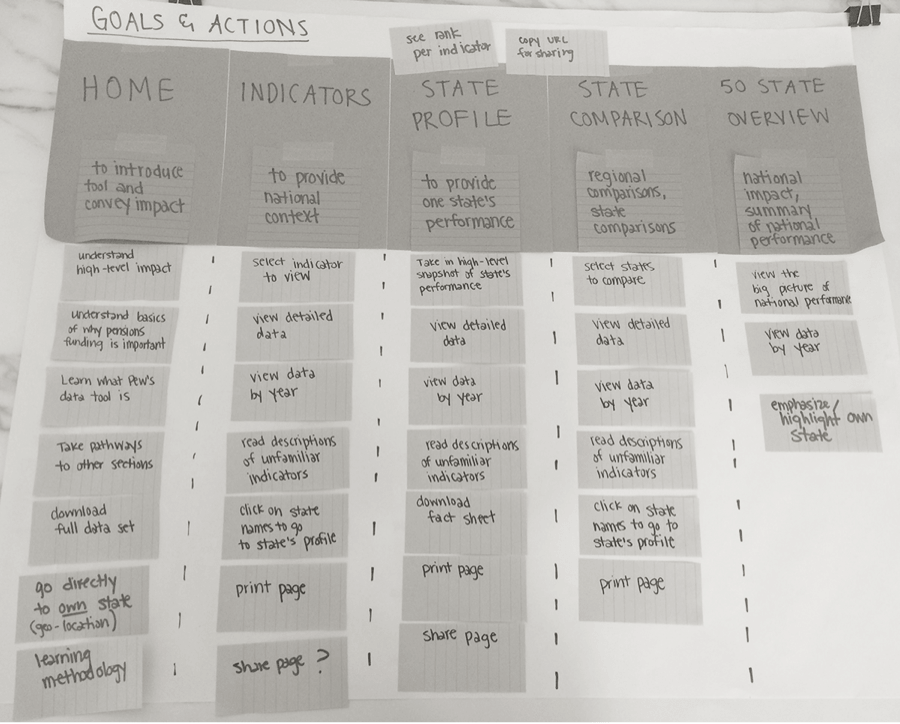 GOALS & ACTIONS
see rank
per indicator
copy URL
for sharing
HOME
to introduce
tool and
convey impact
understand
high-level impact
understand basics
of why pensions
funding is important
Learn what Pew's
data tool is
Take pathways
to other sections
download
full data set
go directly
to own state
(geo-location)
learning
methodology
INDICATORS
to provide
national
context
select indicator
to view
view detailed
data
view data
by year
read descriptions
of unfamiliar
indicators
click on state
names to go
to state's profile
print page
share page ?
STATE
PROFILE
to provide
one state's
performance
Take in high-level
snapshot of state's
performance
view detailed
data
view data
by year
read descriptions
of unfamiliar
indicators
download
fact sheet
print page
share page
STATE
COMPARISON
regional
comparisons,
state
comparisons
select states
to compare
view detailed
data
view data
by year
read descriptions
of unfamiliar
indicators
click on state
names to go to
state's profile
print page
50 STATE
OVERVIEW
national
impact,
summary
of national
performance
view the
big picture of
national performance
view data
by year
emphasize/
highlight own
state